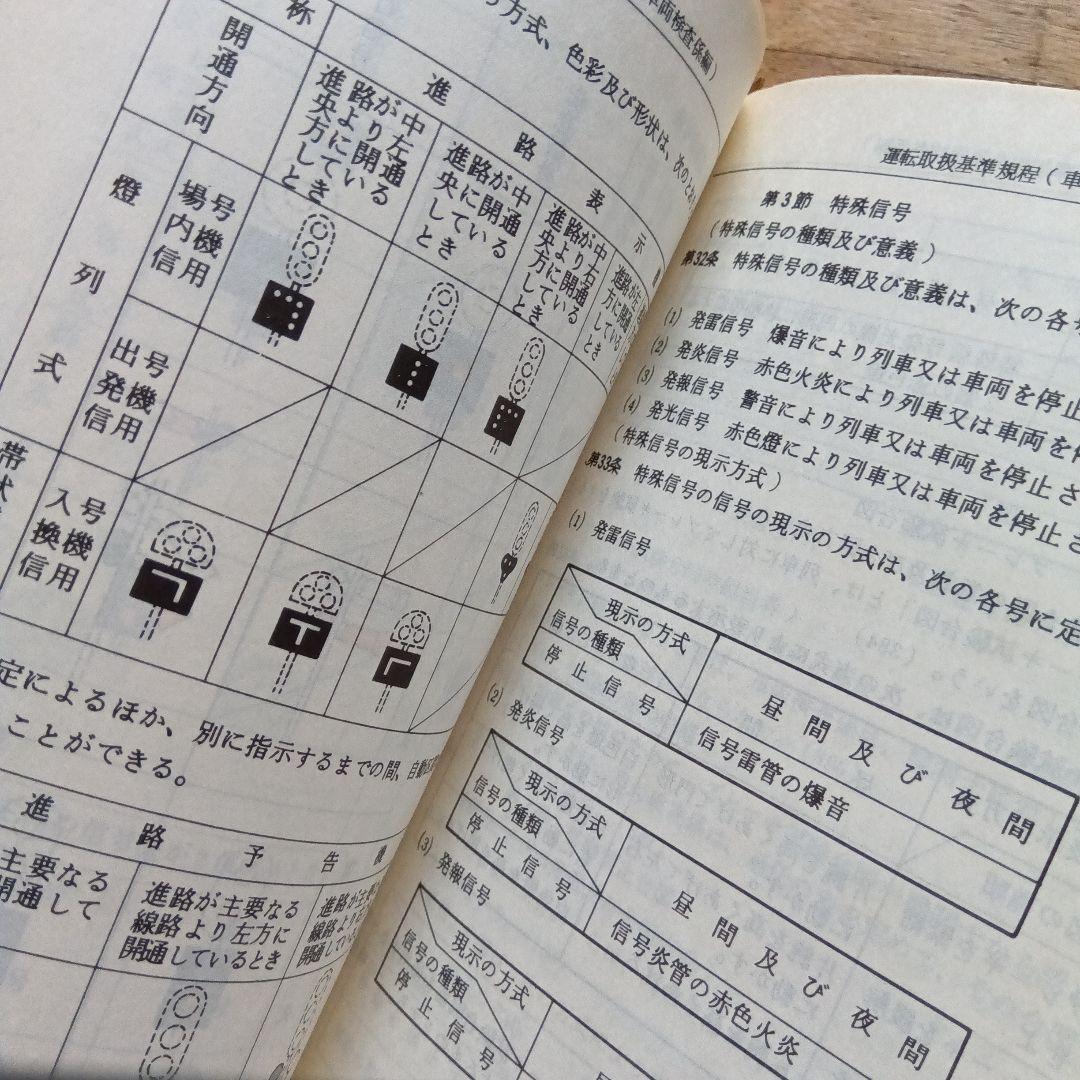 車両検査係編）
の方式、色彩及び形状は、次のとお
称
進路表示
開通方向
進路が中
央より左
方に開通
しているとき
進路が中
央に開通
している
とき
進路が中
央より右
方に開通
しているとき
進路が左
方に開通
している
とき
燈列式
場内信号機用
出発信号機用
帯状
入換信号機用
定によるほか、別に指示するまでの間、自動
ことができる。
進路予告機
主要なる
開通して
進路が主要なる
線路より左方に
開通しているとき
進路が主要
線路より右
開通してい
運転取扱基準規程（車
第3節 特殊信号
（特殊信号の種類及び意義）
第32条 特殊信号の種類及び意義は、次の各号
(1) 発雷信号 爆音により列車又は車両を停止
(2) 発炎信号 赤色火炎により列車又は車両を停
(3) 発報信号 警音により列車又は車両を停止さ
(4) 発光信号 赤色燈により列車又は車両を停止さ
（特殊信号の現示方式）
第33条 特殊信号の信号の現示の方式は、次の各号に定
(1) 発雷信号
現示の方式
信号の種類
昼間及び夜間
停止信号
信号雷管の爆音
(2) 発炎信号
現示の方式
信号の種類
昼間及び夜間
停止信号
信号炎管の赤色火炎
(3) 発報信号
現示の方式
信号の種類
停止信号